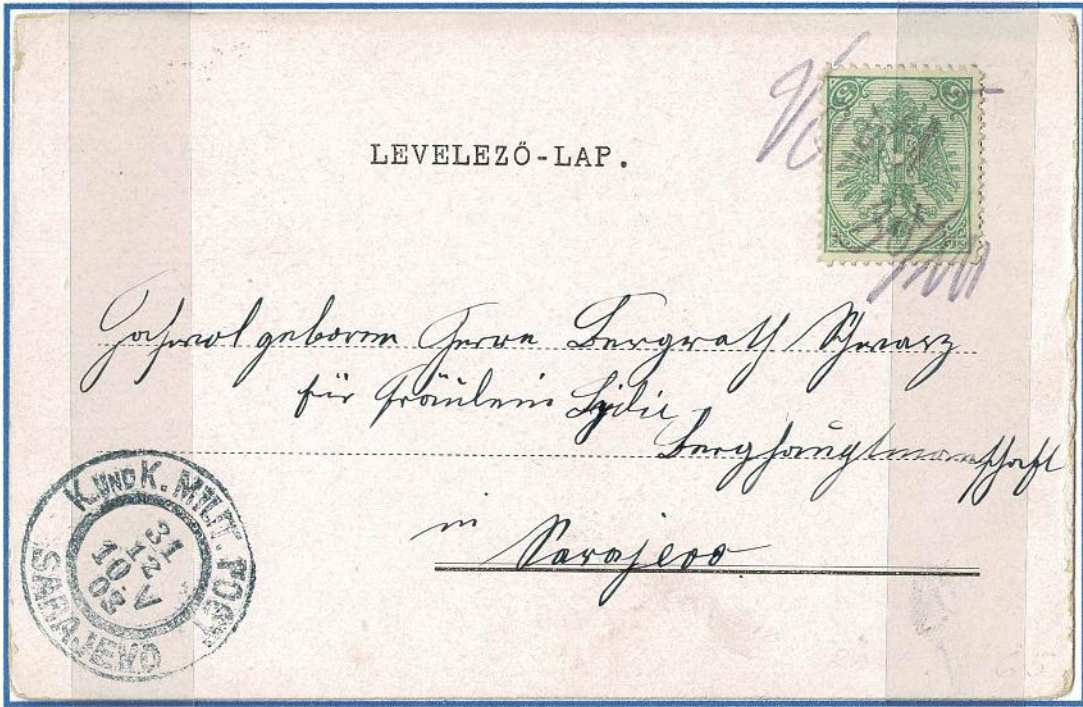 5 5
LEVELEZŐ-LAP.
Hochwolgeboren Herrn Bergrath Schwarz
für Fräulein Lydie
Berghauptmannschaft
in Sarajevo
K. UND K. MILIT. POST
31
12
10 V
02
SARAJEVO